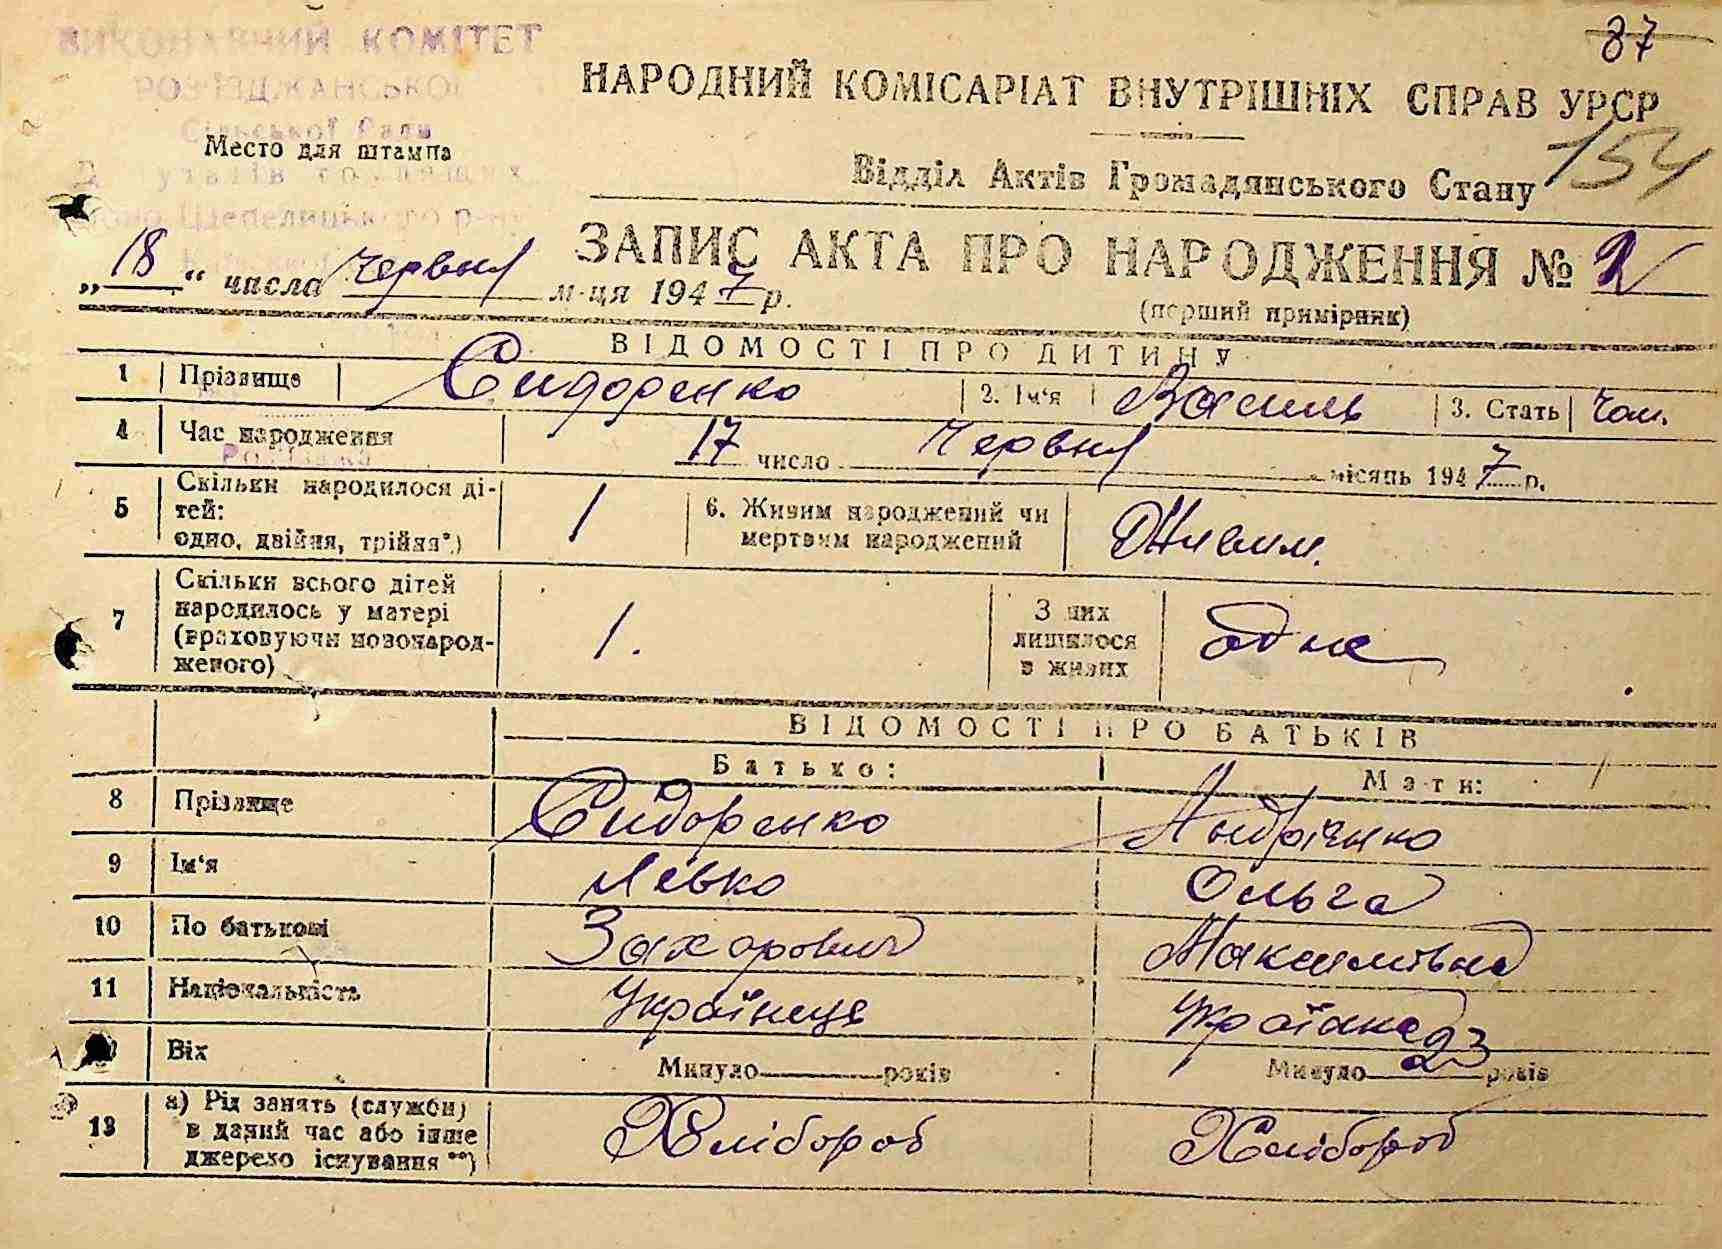 87
ВИКОНАВЧИЙ КОМІТЕТ
РОЗ'ЇЗДЖАНСЬКОЇ
Сільської Ради
Місто для штампа
Шепелицького р-ну
НАРОДНИЙ КОМІСАРІАТ ВНУТРІШНІХ СПРАВ УРСР
154
Відділ Актів Громадянського Стану
ЗАПИС АКТА ПРО НАРОДЖЕННЯ № 2
„18“ числа червня м-ця 1947 р.
(перший примірник)
ВІДОМОСТІ ПРО ДИТИНУ
1 Прізвище Сидоренко 2. Ім'я Василь 3. Стать чол.
4 Час народження 17 число червня місяць 1947 р.
5 Скільки народилося ді-
тей:
одно, двійня, трійня*) 1 6. Живим народжений чи
мертвим народжений Живим.
7 Скільки всього дітей
народилось у матері
(враховуючи новонарод-
женого) 1. З них
лишилося
в живих одне
ВІДОМОСТІ ПРО БАТЬКІВ
Батько: Мати:
8 Прізвище Сидоренко
9 Ім'я Левко Ольга
10 По батькові Захарович Максимівна
11 Національність Українець Українка
Вік Минуло років Минуло 23 років
13 а) Рід занять (служби)
в даний час або інше
джерело існування **) Хлібороб Хлібороб